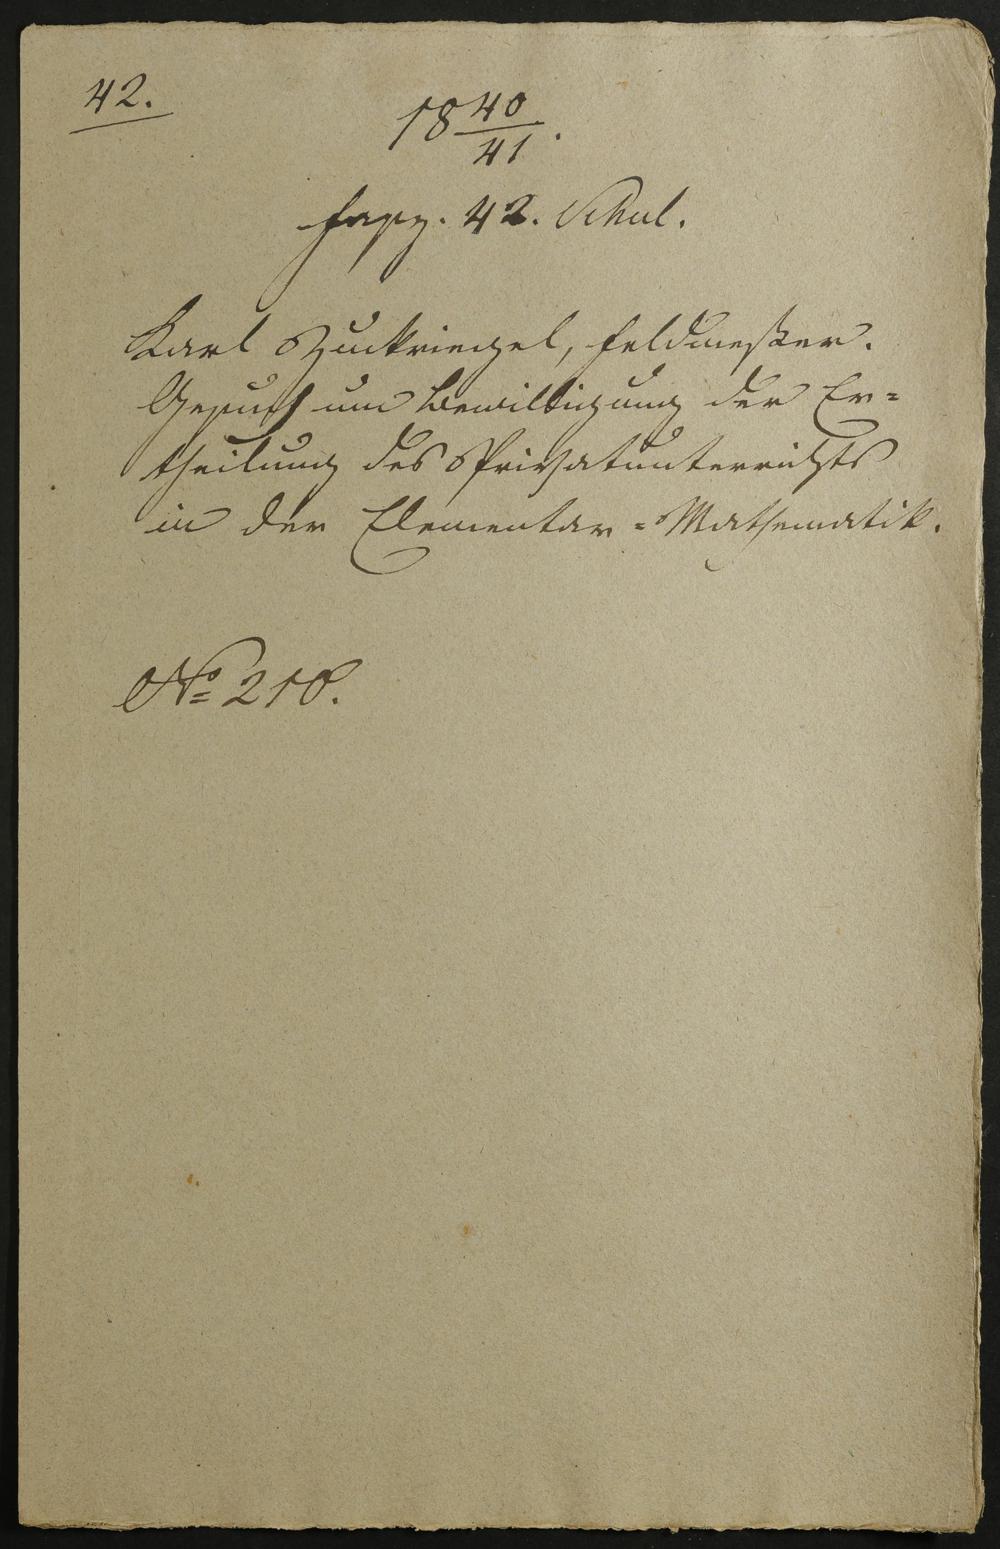 42.
18 40/41.
Fasz. 42. Schul.
Karl Zuckriegel, Feldmeßer.
Gesuch um Bewilligung der Er=
theilung des Privatunterrichts
in der Elementar=Mathematik.
No 210.